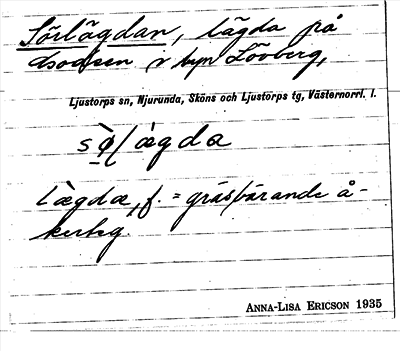 Sörlägdan, lägda på
v byn Lövberg,
Ljustorps sn, Njurunda, Sköns och Ljustorps tg, Västernorrl. l.
lægdæ, f. = gräsbärande å-
kerteg.
ANNA-LISA ERICSON 1935